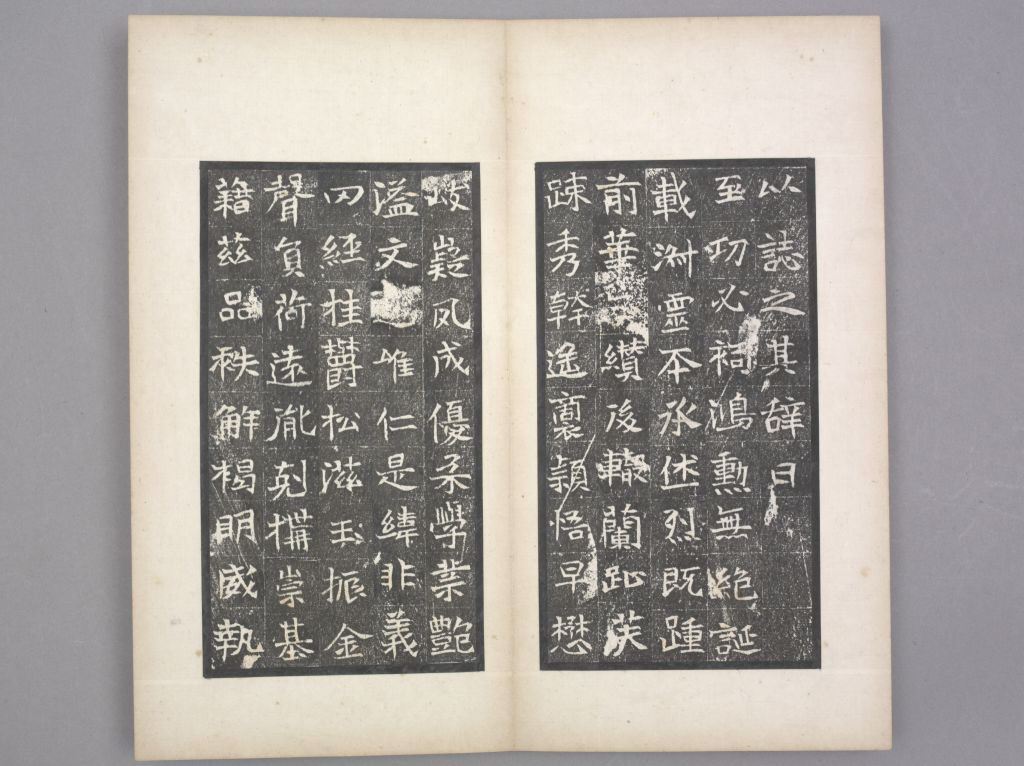 以誌之其辭曰
至功必祠鴻勳無絶誕
載渊靈本承俶烈既踵
前華纘後轍蘭趾英
踈秀幹遥裔穎悟早懋
岐嶷夙成優柔學業艷
溢文唯仁是緯非義
罔經桂欝松滋玉振金
聲負荷遠胤剋構崇基
籍兹品秩解褐明威執